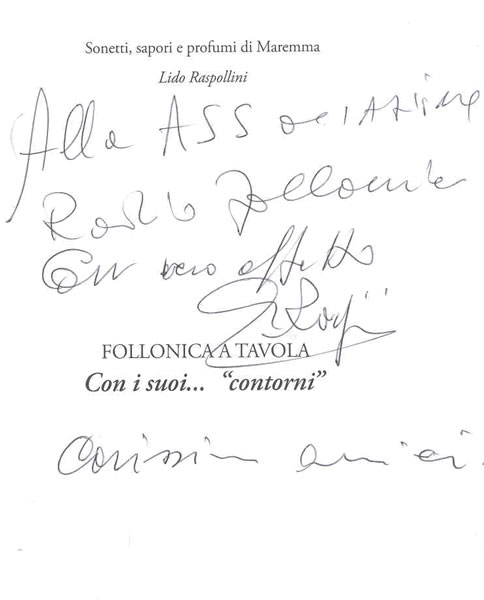 Sonetti, sapori e profumi di Maremma
Lido Raspollini
Alla ASSociAzione
Follonica
Con vero affetto
FOLLONICA A TAVOLA
Con i suoi... “contorni”
Carissimi amici.